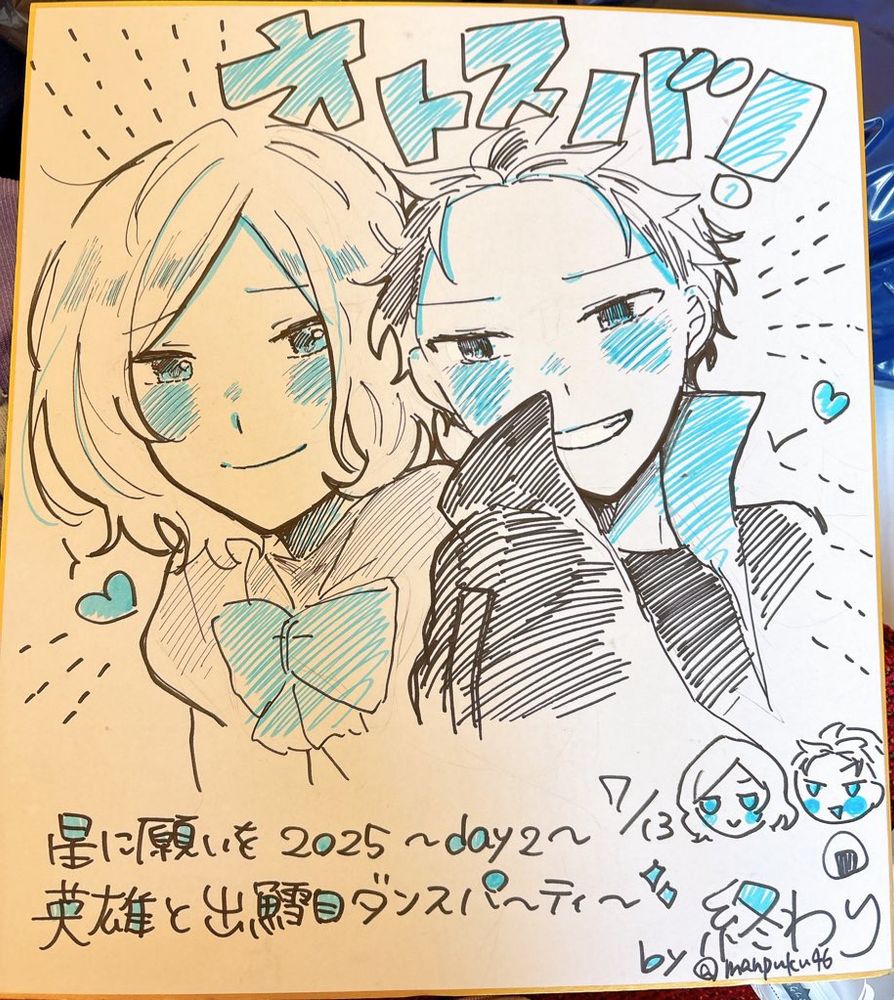 オトスバ!
星に願いを 2025 〜day2〜 7/13
英雄と出鱈目ダンスパ〜ティ〜
by 終わり
@manpuku46